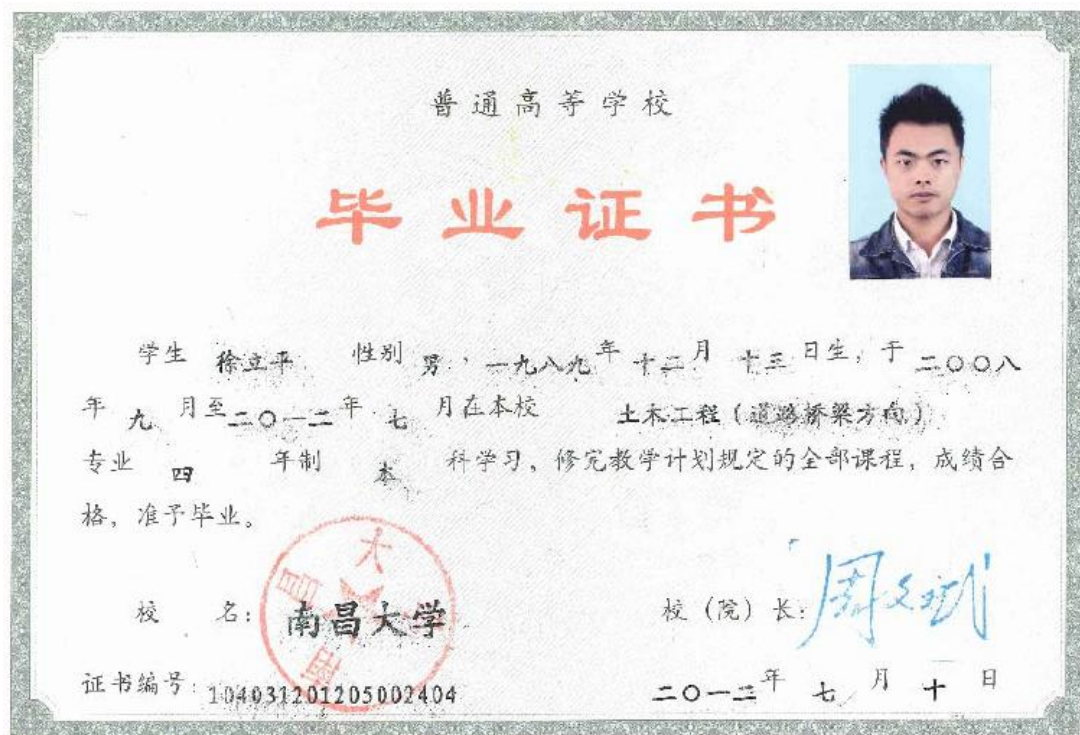 普通高等学校
毕业证书
学生 徐立平 性别 男，一九八九年十二月十三日生，于二〇〇八
年九月至二〇一二年七月在本校 土木工程（道路桥梁方向）
专业 四 年制 本 科学习，修完教学计划规定的全部课程，成绩合
格，准予毕业。
校 名：南昌大学
校（院）长：周文斌
证书编号：104031201205002404
二〇一二年七月十日
南昌大